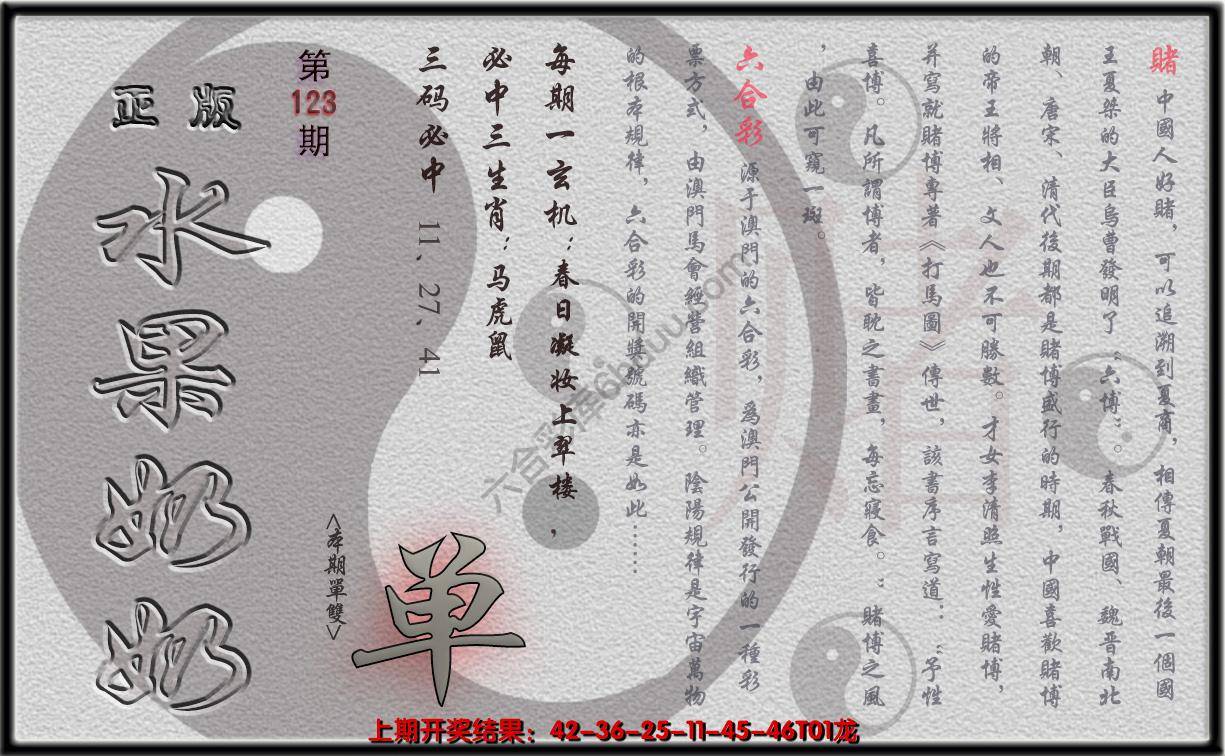 賭 中國人好賭，可以追溯到夏商，相傳夏朝最後一個國
王夏桀的大臣烏曹發明了“六博”。春秋戰國、魏晉南北
朝、唐宋、清代後期都是賭博盛行的時期，中國喜歡賭博
的帝王將相、文人也不可勝數。才女李清照生性愛賭博，
并寫就賭博專著《打馬圖》傳世，該書序言寫道：“予性
喜博。凡所謂博者，皆耽之晝晝，每忘寢食。”賭博之風
，由此可窺一斑。
六合彩 源于澳門的六合彩，爲澳門公開發行的一種彩
票方式，由澳門馬會經營組織管理。陰陽規律是宇宙萬物
的根本規律，六合彩的開獎號碼亦是如此……
每期一玄机：春日凝妆上翠楼，
必中三生肖：马虎鼠
三码必中 11、27、41
第
123
期
<本期單雙>
单
正版
水果奶奶
六合彩库6hduu.com
上期开奖结果：42-36-25-11-45-46T01龙